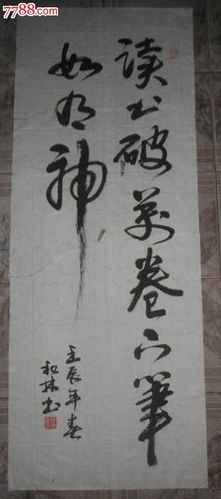 7788.com
读书破万卷下笔
如有神
壬辰年春
和林书